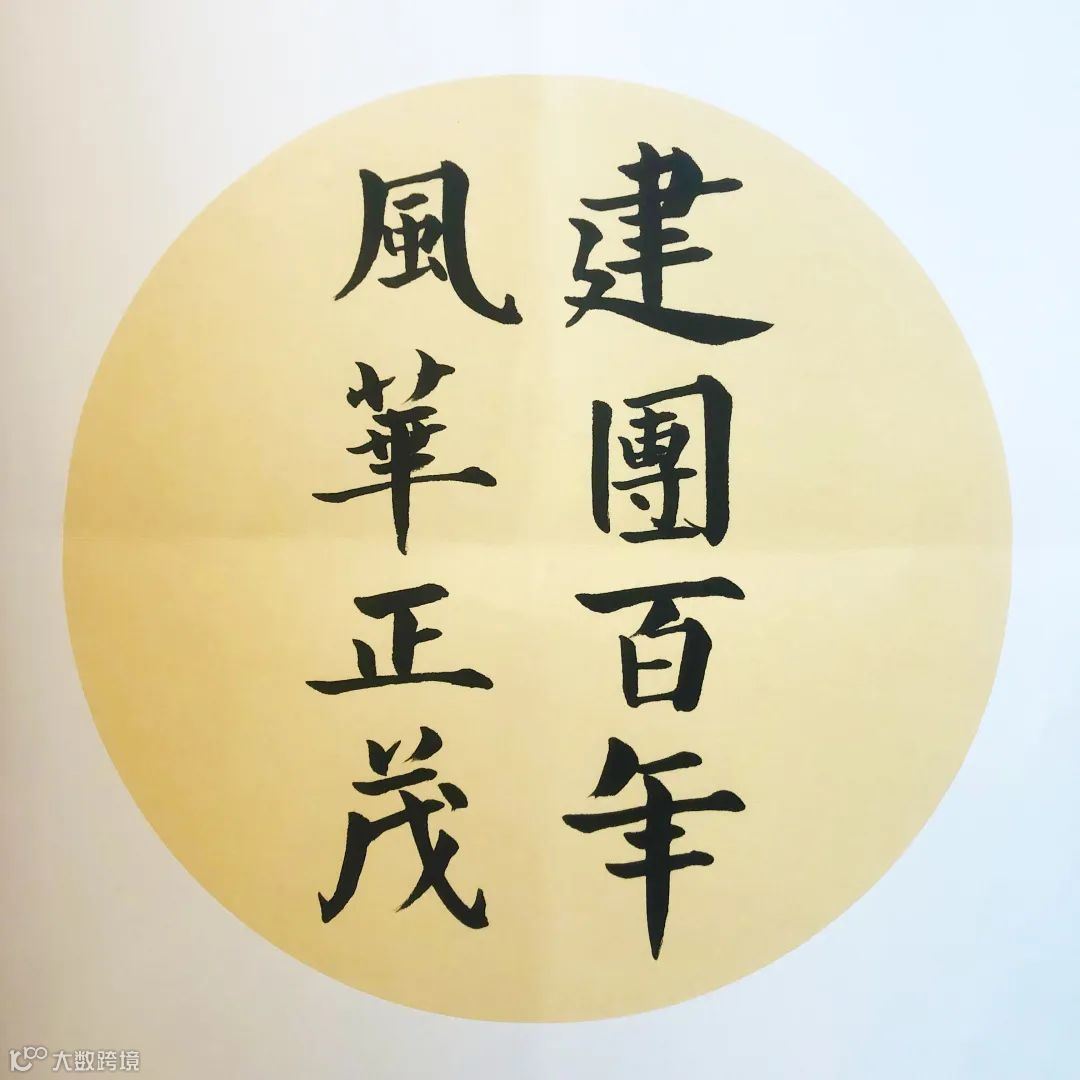 建團百年
風華正茂
大数跨境